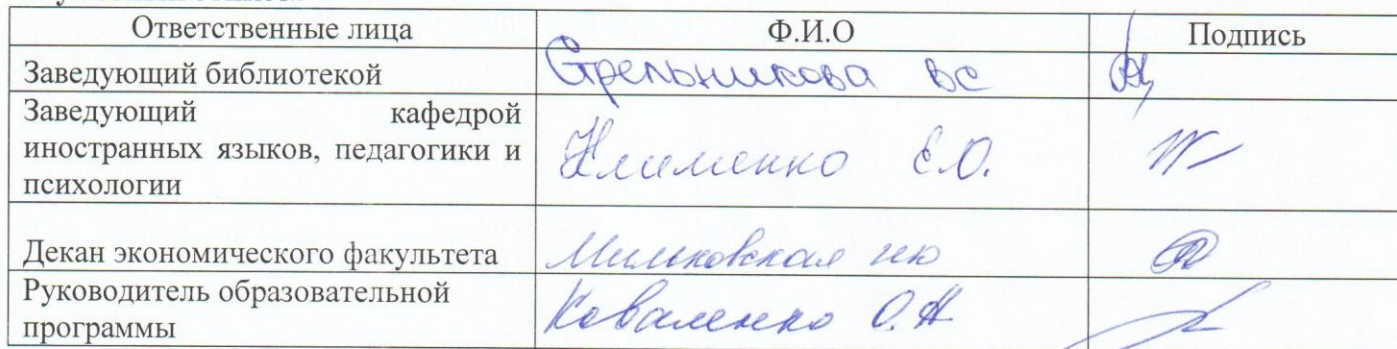 Ответственные лица Ф.И.О Подпись
Заведующий библиотекой Стрельникова ВС
Заведующий кафедрой
иностранных языков, педагогики и
психологии
Клименко Е.О.
Декан экономического факультета Мильковская ИЮ
Руководитель образовательной
программы
Коваленко О.Н